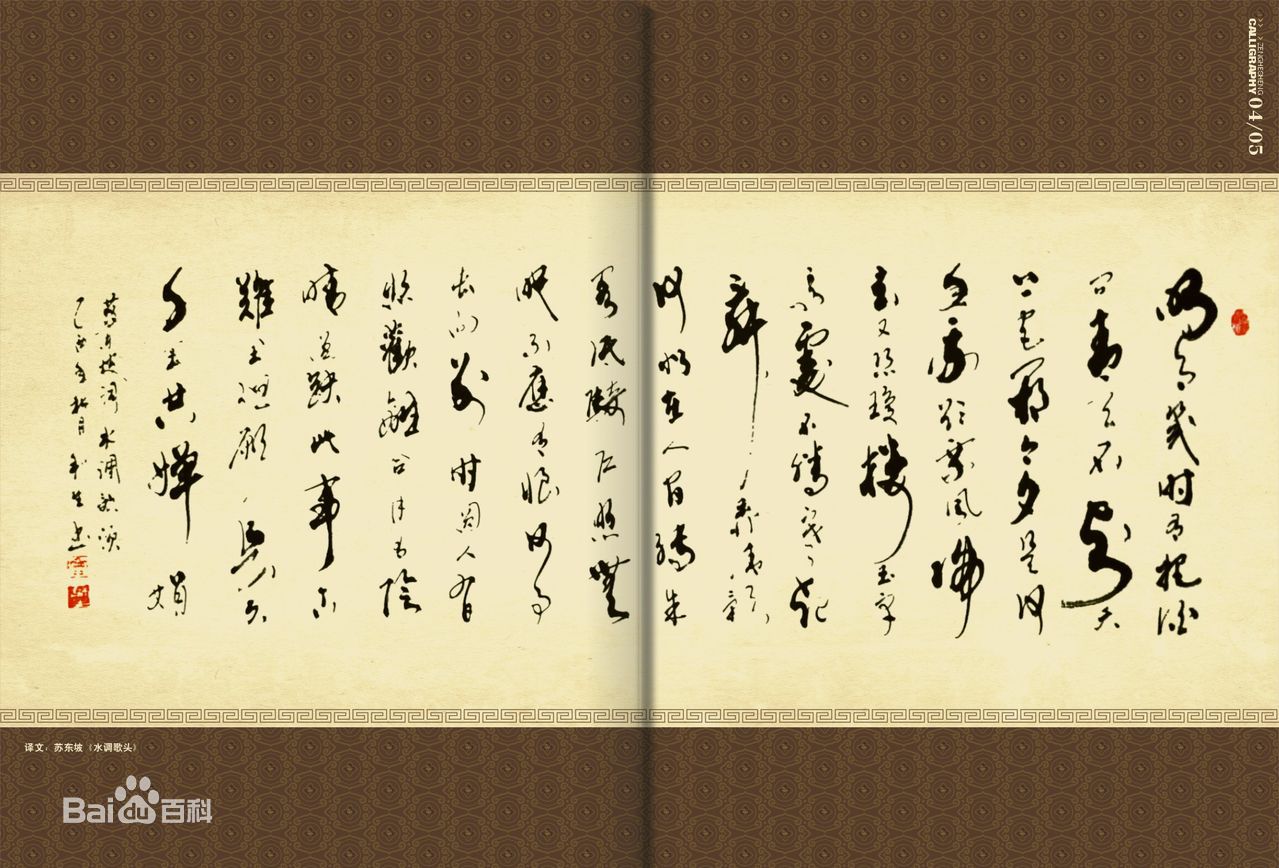 CALLIGRAPHY 04/05
ZENGHESHENG
明月幾时有把酒
问青天不知天
上宫阙今夕是何
年我欲乘风归
去又恐琼楼玉宇
高處不勝寒起
舞弄清影
何似在人间转朱
阁低绮户照無
眠不應有恨何事
长向别时圆人有
悲歡離合月有陰
晴圆缺此事古
難全但願人长久
千里共嬋娟
蘇东坡词水调歌头
乙酉年 月 生书
译文：苏东坡《水调歌头》
Baidu百科